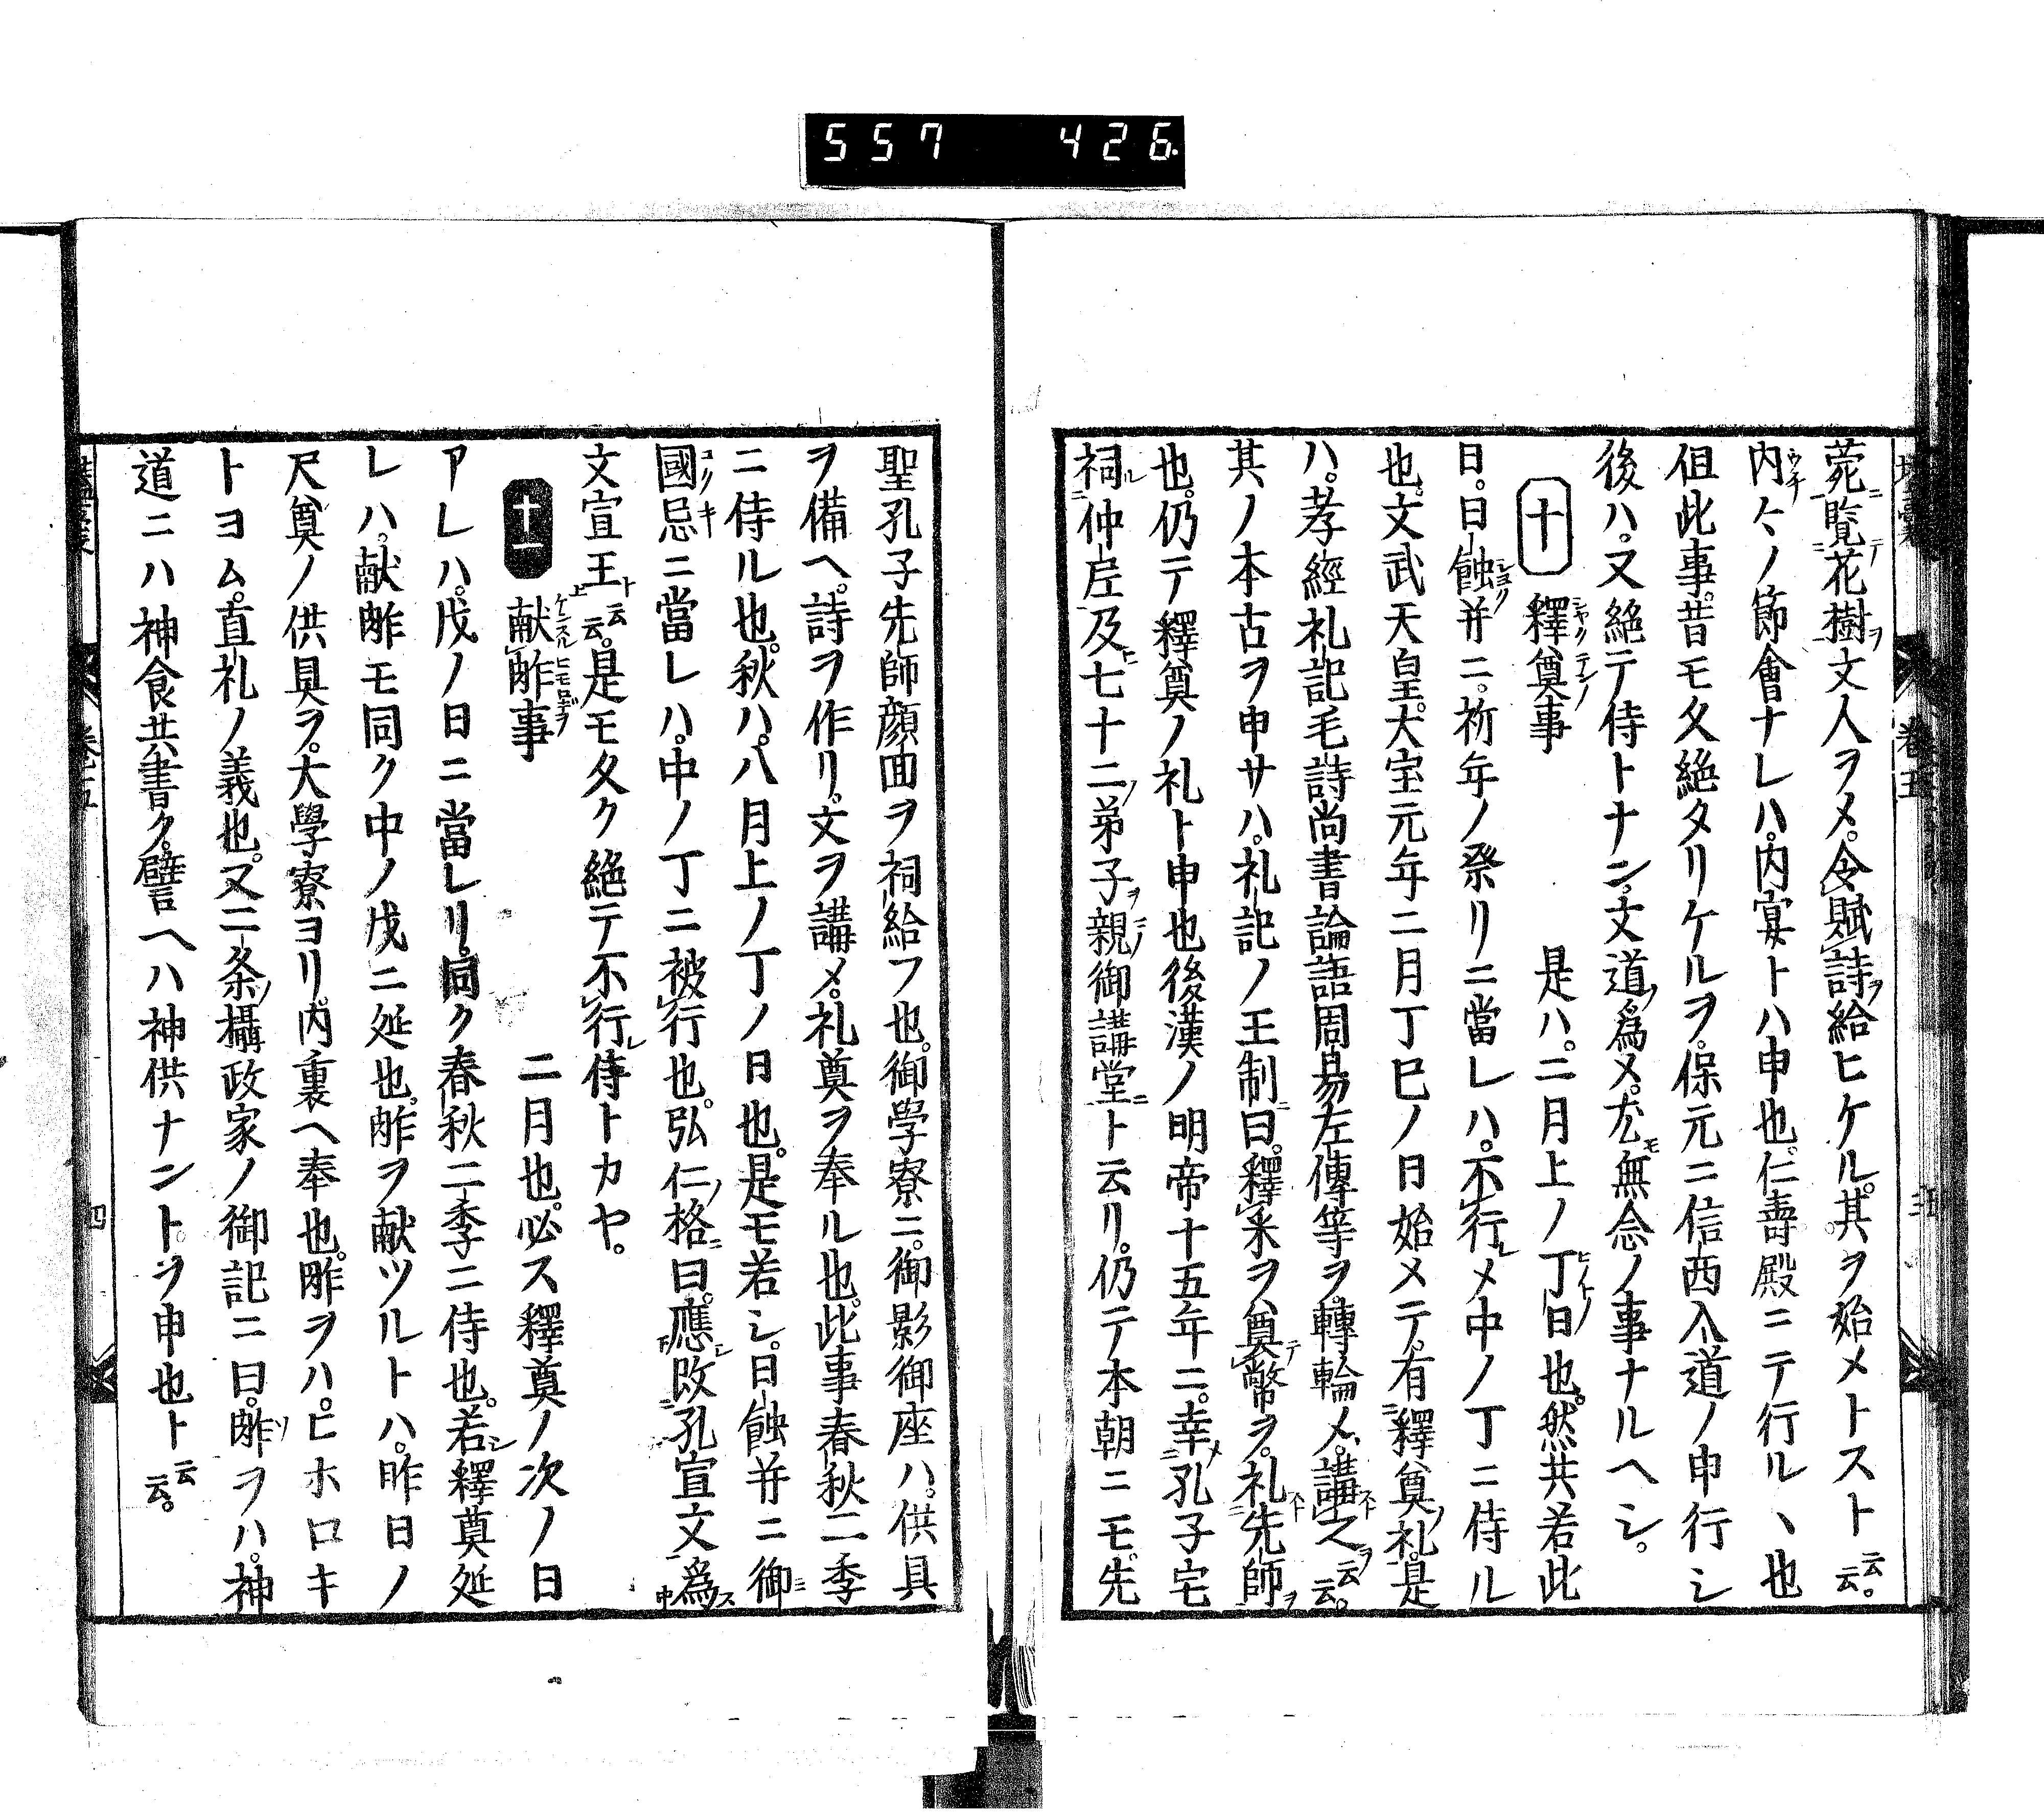 557 426
菀ニ覧テ花樹ヲ文人ヲメ。令賦詩ヲ給ヒケル。其ヲ始メトスト云云。
内々ノ節會ナレハ。内宴トハ申也。仁壽殿ニテ行ルヽ也
但此事。昔モ久絶タリケルヲ。保元ニ信西入道ノ申行シ
後ハ。又絶テ侍トナン。文道ノ為メ。尤モ無念ノ事ナルヘシ。
十 釋奠事 是ハ。二月上ノ丁ノ日也。然共若此
日。日蝕并ニ。祈年ノ祭リニ當レハ。不行レメ中ノ丁ニ侍ル
也。文武天皇。大宝元年二月丁巳ノ日始メテ。有釋奠ノ礼。是
ハ。孝經礼記毛詩尚書論語周易左傳等ヲ。轉輪メ。講スト之ヲ云云。
其ノ本古ヲ申サハ。礼記ノ王制ニ曰。釋釆ヲ奠テ幣ヲ。礼スト先師ヲ
也。仍テ釋奠ノ礼ト申也後漢ノ明帝十五年ニ。幸メ孔子宅
祠ル仲𡰱及ヒ七十二ノ弟子ヲ親ミ御講堂ニト云リ。仍テ本朝ニモ。先
聖孔子先師顔囬ヲ祠給フ也。御學寮ニ。御影御座ハ。供具
ヲ備ヘ。詩ヲ作リ。文ヲ講メ。礼奠ヲ奉ル也。此事春秋二季
ニ侍ル也。秋ハ。八月上ノ丁ノ日也。是モ若シ。日蝕并ニ御
國忌ニ當レハ。中ノ丁ニ被行也。弘仁ノ格ニ曰。應シ改孔宣文ヲ為ス
文宣王ト云云。是モ久ク絶テ不行レ侍トカヤ。
十一 献胙事 二月也。必ス釋奠ノ次ノ日
アレハ。戊ノ日ニ當レリ。同ク春秋二季ニ侍也。若シ釋奠延
レハ。献胙モ同ク中ノ戊ニ延也。胙ヲ献ツルトハ。昨日ノ
尺奠ノ供具ヲ。大學寮ヨリ。内裏ヘ奉也。胙ヲハ。ヒホロキ
トヨム。直礼ノ義也。又二条ノ攝政家ノ御記ニ曰。胙ヲハ。神
道ニハ神食共書ク。譬ヘハ神供ナントヲ申也ト云云。